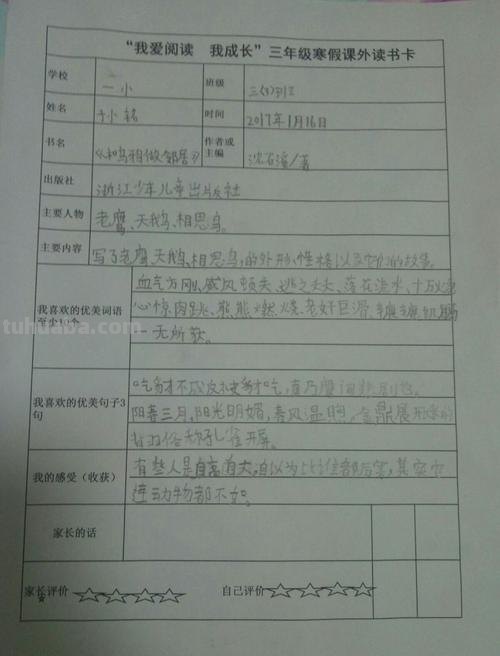 “我爱阅读 我成长”三年级寒假课外读书卡
学校 一小 班级
姓名 时间 2017年1月16日
书名 《和乌鸦做邻居》 作者或主编 沈石溪/著
出版社 浙江少年儿童出版社
主要人物 老鹰、天鹅、相思鸟。
主要内容 写了老鹰、天鹅、相思鸟,的外形、性格以及它们的故事。
血气方刚、威风 、逃之夭夭、落花流水、十万火
我喜欢的优美词语至少10个 心惊肉跳、熊熊燃烧、老奸巨滑、
一无所获。
我喜欢的优美句子3句
阳春三月,阳光明媚,春风温煦。
开屏。
我的感受(收获) 有些人是自高自大,自以为 部厉害,其实
连动物都不如。
家长的话
家长评价 ☆☆☆☆☆ 自己评价 ☆☆☆☆☆
tuhuaba.com